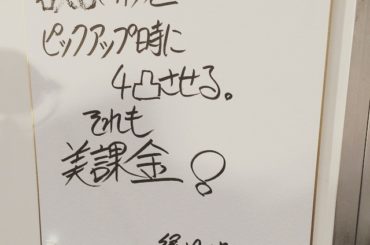 ピックアップ時に
4凸させる。
それも
美課金!